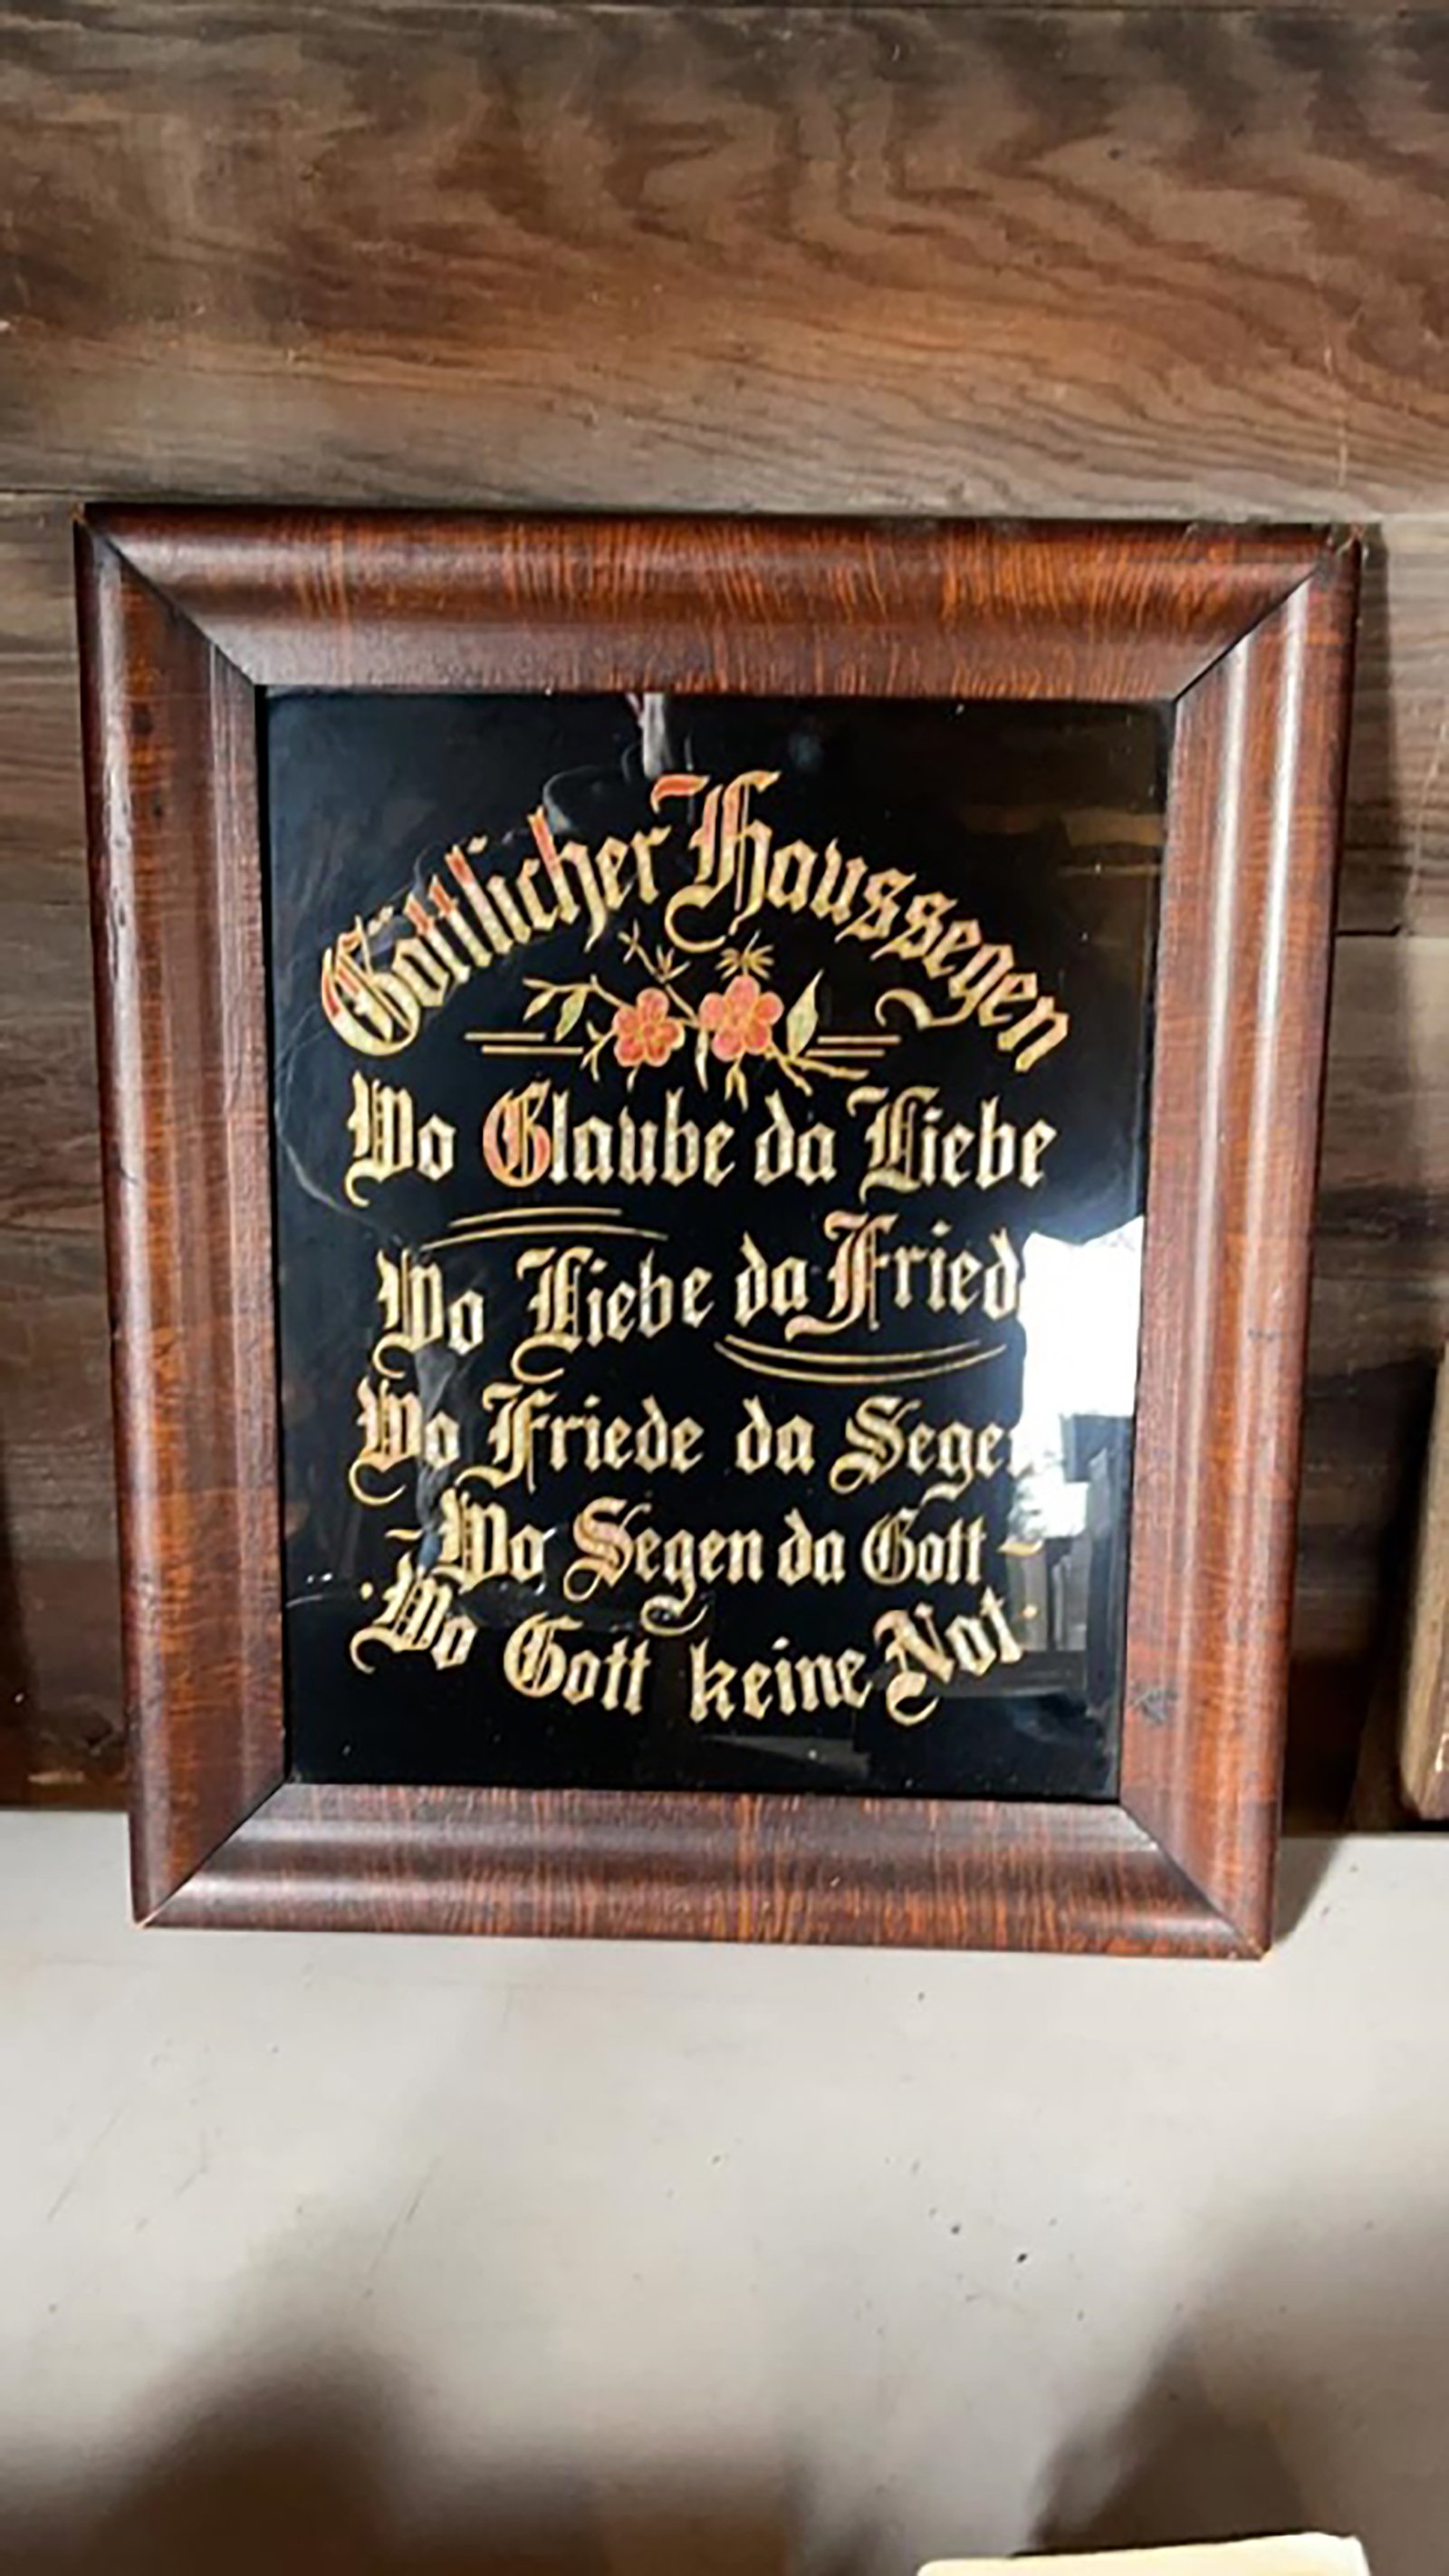 Göttlicher Haussegen
Wo Glaube da Liebe
Wo Liebe da Fried
Wo Friede da Segen
Wo Segen da Gott
Wo Gott keine Not